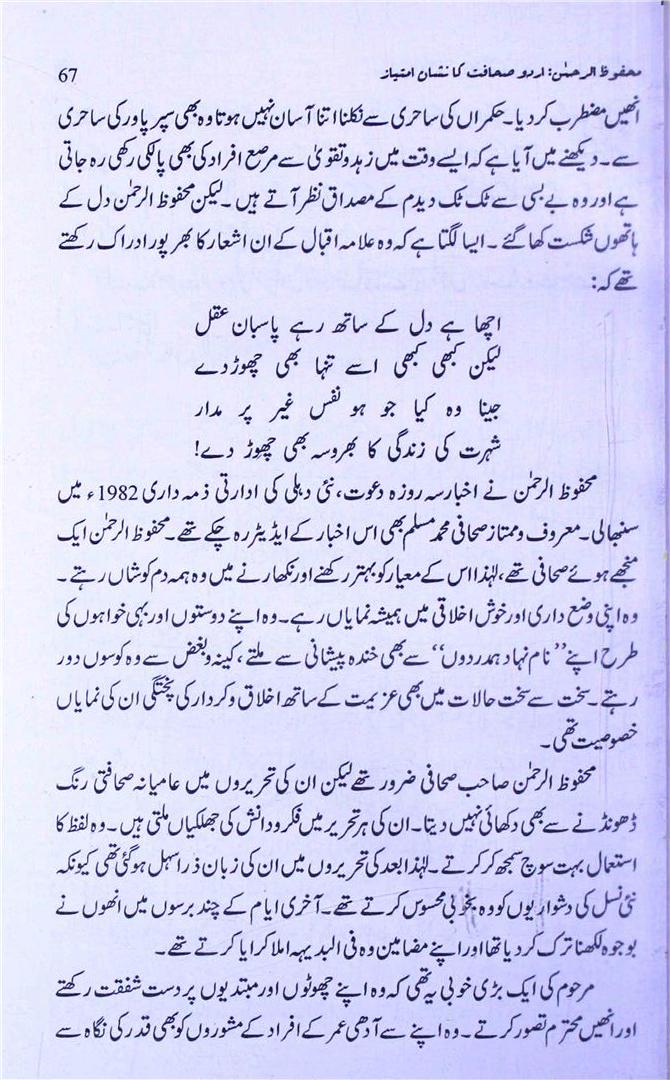 محفوظ الرحمٰن: اردو صحافت کا نشان امتیاز 67
انھیں مضطرب کردیا۔ حکمراں کی ساحری سے نکلنا اتنا آسان نہیں ہوتا وہ بھی سپر پاور کی ساحری
سے۔ دیکھنے میں آیا ہے کہ ایسے وقت میں زہد و تقویٰ سے مرصع افراد کی بھی پالکی رکھی رہ جاتی
ہے اور وہ بے بسی سے ٹک ٹک دیدم کے مصداق نظر آتے ہیں۔ لیکن محفوظ الرحمٰن دل کے
ہاتھوں شکست کھا گئے۔ ایسا لگتا ہے کہ وہ علامہ اقبال کے ان اشعار کا بھرپور ادراک رکھتے
تھے کہ:
اچھا ہے دل کے ساتھ رہے پاسبان عقل
لیکن کبھی کبھی اسے تنہا بھی چھوڑ دے
جینا وہ کیا جو ہو نفس غیر پر مدار
شہرت کی زندگی کا بھروسہ بھی چھوڑ دے!
محفوظ الرحمٰن نے اخبار سہ روزہ دعوت، نئی دہلی کی ادارتی ذمہ داری 1982ء میں
سنبھالی۔ معروف و ممتاز صحافی محمد مسلم بھی اس اخبار کے ایڈیٹر رہ چکے تھے۔ محفوظ الرحمٰن ایک
منجھے ہوئے صحافی تھے، لہٰذا اس کے معیار کو بہتر رکھنے اور نکھارنے میں وہ ہمہ دم کوشاں رہتے۔
وہ اپنی وضع داری اور خوش اخلاقی میں ہمیشہ نمایاں رہے۔ وہ اپنے دوستوں اور بہی خواہوں کی
طرح اپنے ’’نام نہاد ہمدردوں‘‘ سے بھی خندہ پیشانی سے ملتے، کینہ و بغض سے وہ کوسوں دور
رہتے۔ سخت سے سخت حالات میں بھی عزیمت کے ساتھ اخلاق و کردار کی پختگی ان کی نمایاں
خصوصیت تھی۔
محفوظ الرحمٰن صاحب صحافی ضرور تھے لیکن ان کی تحریروں میں عامیانہ صحافتی رنگ
ڈھونڈنے سے بھی دکھائی نہیں دیتا۔ ان کی ہر تحریر میں فکر و دانش کی جھلکیاں ملتی ہیں۔ وہ لفظ کا
استعمال بہت سوچ سمجھ کر کرتے۔ لہٰذا بعد کی تحریروں میں ان کی زبان ذرا سہل ہو گئی تھی کیونکہ
نئی نسل کی دشواریوں کو وہ بخوبی محسوس کرتے تھے۔ آخری ایام کے چند برسوں میں انھوں نے
بوجوہ لکھنا ترک کردیا تھا اور اپنے مضامین وہ فی البدیہہ املا کرایا کرتے تھے۔
مرحوم کی ایک بڑی خوبی یہ تھی کہ وہ اپنے چھوٹوں اور مبتدیوں پر دست شفقت رکھتے
اور انھیں محترم تصور کرتے۔ وہ اپنے سے آدھی عمر کے افراد کے مشوروں کو بھی قدر کی نگاہ سے